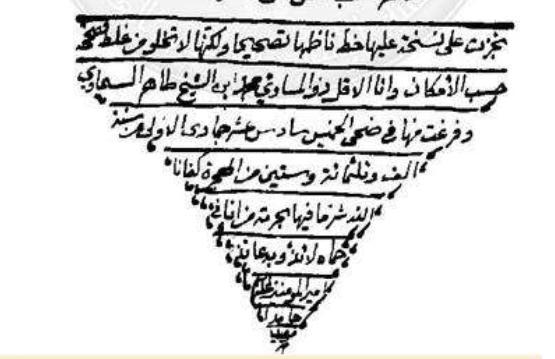 نجزت على نسخة عليها خط ناظمها تصحيحا ولكنها لا تخلو من غلط
حسب الامكان وانا الاقل ذو المساوي محمد ابن الشيخ طاهر السماوي
وفرغت منها في ضحى الخميس سادس عشر جمادى الاولى من سنة
الف وثلثمائة وستين من الهجرة كفانا
الله شر ما فيها بحرمة من انا في
حماه لائذ وبدعائه
امير المومنين
حامدا